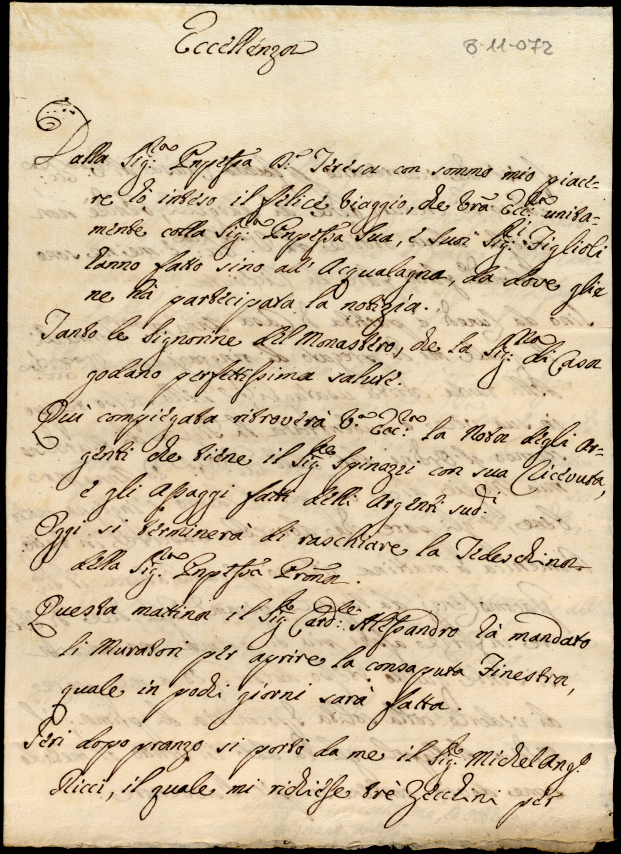 Eccellenza
8-11-072
Dalla Sig.ra Pnpessa D.a Teresa con sommo mio piace-
re hò inteso il felice viaggio, che Vra Ecc.za unita-
mente colla Sig.ra Pnpessa Sua, e suoi Sig.ri Figlioli
hanno fatto sino ad' Acqualagna, da dove glie
ne hà participata la notizia.
Tanto le Signorine del Monastero, che la Sig.rina di Casa
godano perfettissima salute.
Quì compiegata ritroverà V.a Ecc.za la Nota degli Ar-
genti che tiene il Sig.re Spinazzi con sua Ricevuta,
e gli apaggi fatti delli Argenti sud.i
Oggi si terminerà di raschiare la Tedeschina
della Sig.ra Pnpessa Prona.
Questa mattina il Sig.re Card.le Alessandro hà mandato
li Muratori per aprire la consaputa Finestra,
quale in pochi giorni sarà fatta.
Jeri dopo pranzo si portò da me il Sig.re Michel Ang.o
Ricci, il quale mi richiese trè Zecchini per